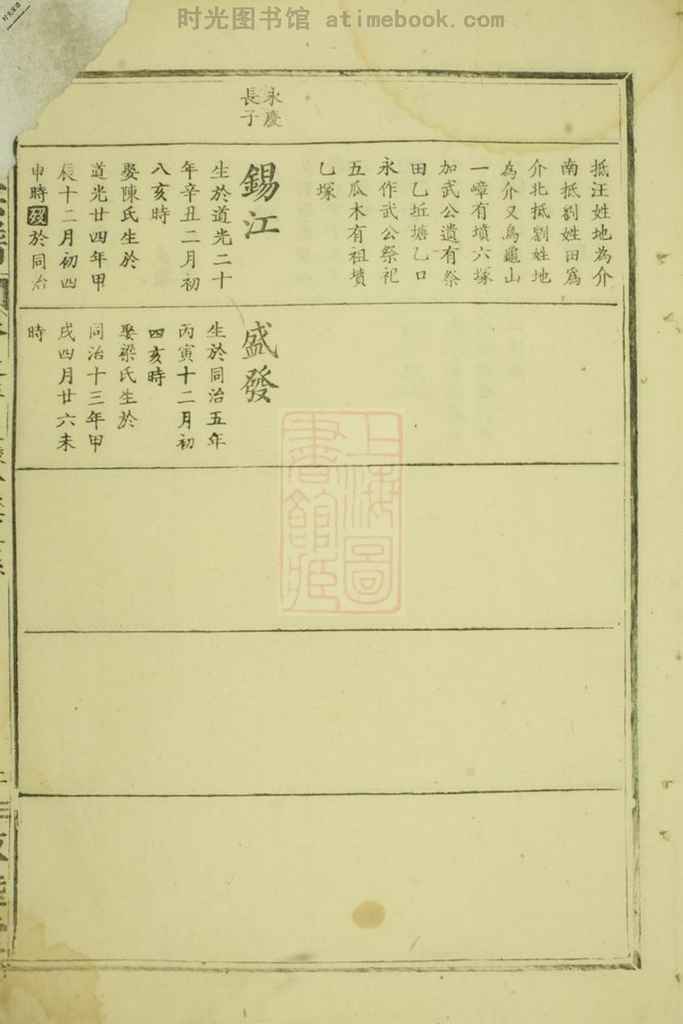 时光图书馆 atimebook.com
抵汪姓地為介
南抵劉姓田為
介北抵劉姓地
為介又烏龜山
一嶂有墳六塚
加武公遺有祭
田乙坵塘乙口
永作武公祭祀
五瓜木有祖墳
乙塚
永慶
長子
錫江
生於道光二十
年辛丑二月初
八亥時
娶陳氏生於
道光廿四年甲
辰十二月初四
申時歿於同治
盛發
生於同治五年
丙寅十二月初
四亥時
娶梁氏生於
同治十三年甲
戌四月廿六未
時
上海圖
書館藏